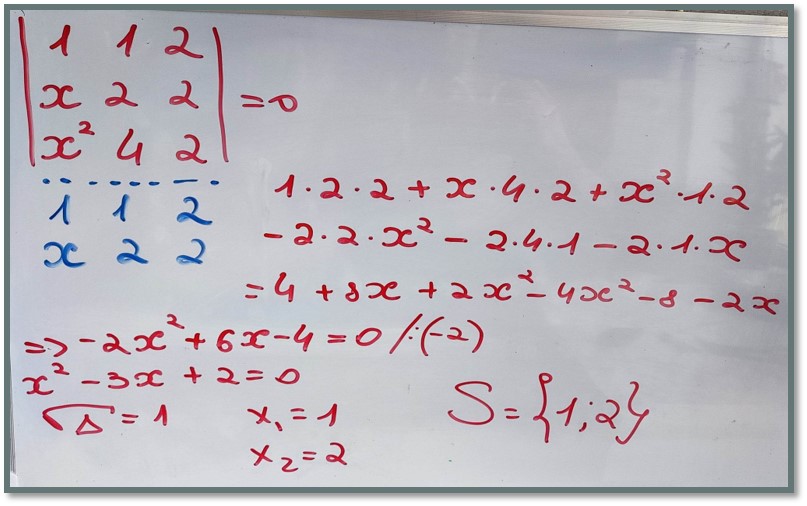 | 1 1 2 |
| x 2 2 | = 0
| x² 4 2 |
1 1 2
x 2 2
1·2·2 + x·4·2 + x²·1·2
- 2·2·x² - 2·4·1 - 2·1·x
= 4 + 8x + 2x² - 4x² - 8 - 2x
=> -2x² + 6x - 4 = 0 /:(-2)
x² - 3x + 2 = 0
√Δ = 1
x₁ = 1
x₂ = 2
S = {1;2}